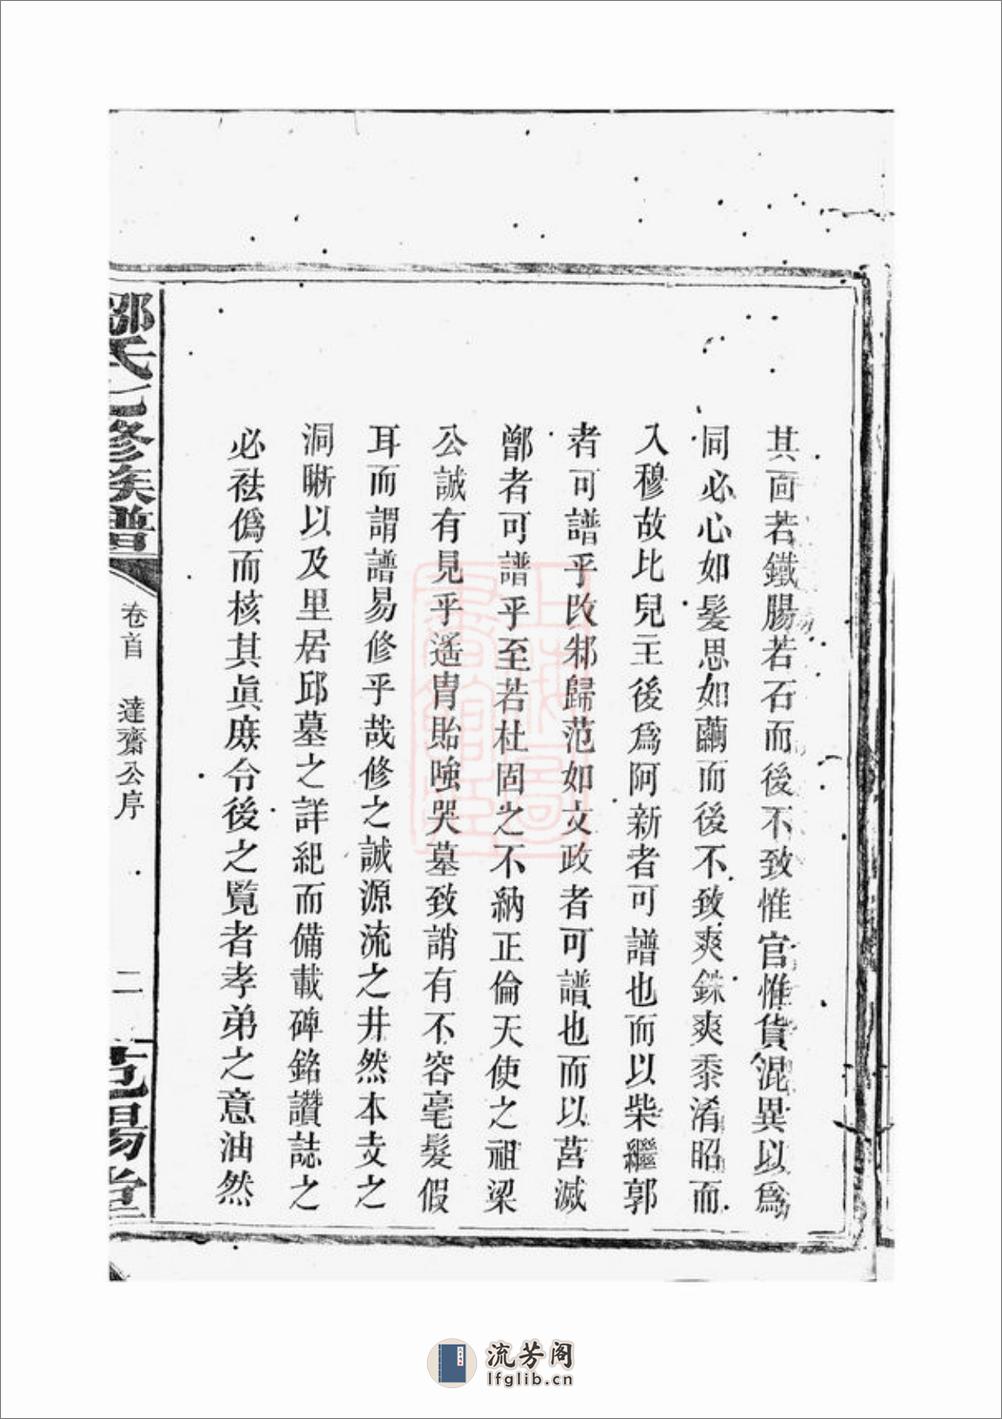 其面若鐵腸若石而後不致惟官惟貨混異以爲
同必心如髮思如繭而後不致爽銖爽黍淆昭而
入穆故比兒主後爲阿新者可譜也而以柴繼郭
者可譜乎改邾歸范如文政者可譜也而以莒滅
鄫者可譜乎至若杜固之不納正倫天使之祖梁
公誠有見乎遙胄貽嗤哭墓致誚有不容毫髮假
耳而謂譜易修乎哉修之誠源流之井然本支之
洞晰以及里居邱墓之詳紀而備載碑銘讚誌之
必祛僞而核其眞庶令後之覽者孝弟之意油然
鄒氏七修族譜
卷首 達齋公序
二
范陽堂
上海圖書館藏
流芳阁
lfglib.cn